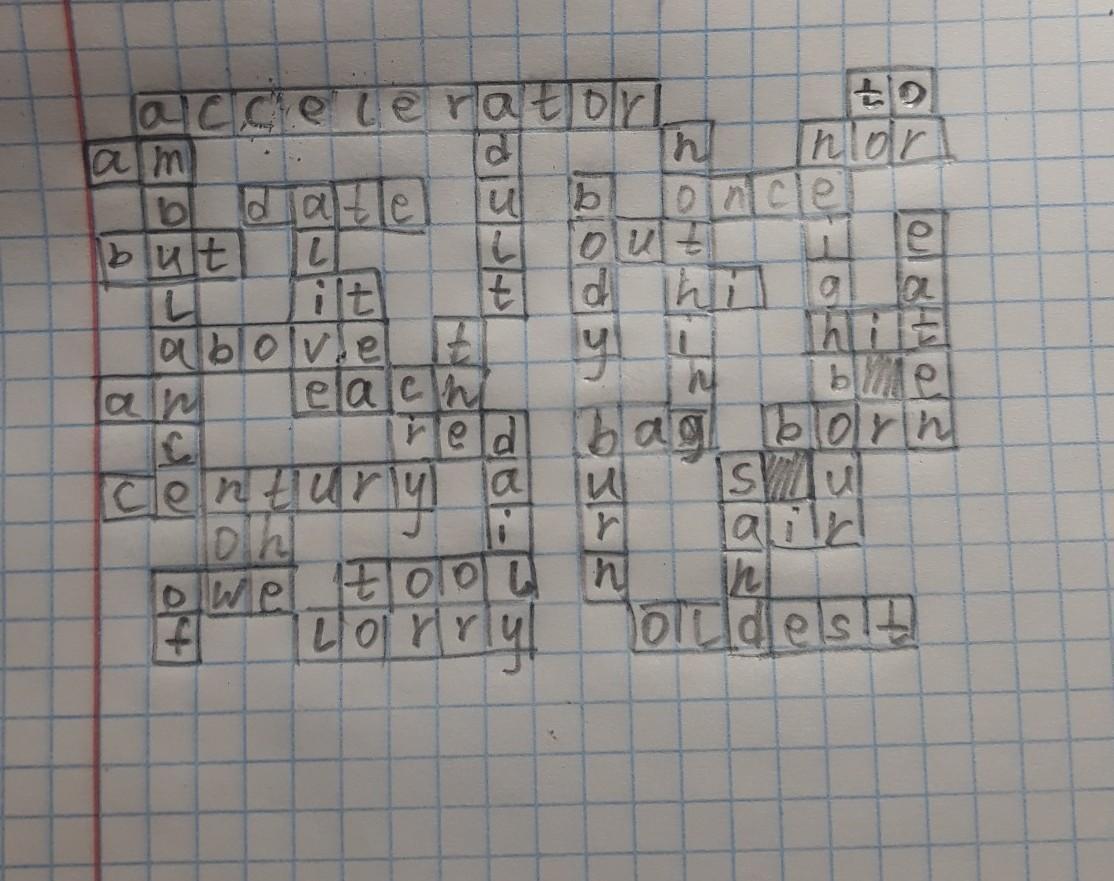 accelerator to
am d n nor
b date u b once
but l l out i e
l it t d hi g a
above t y i hit
an each n b e
c red bag born
century a u s u
oh i r air
owe tool n n
f lorry oldest